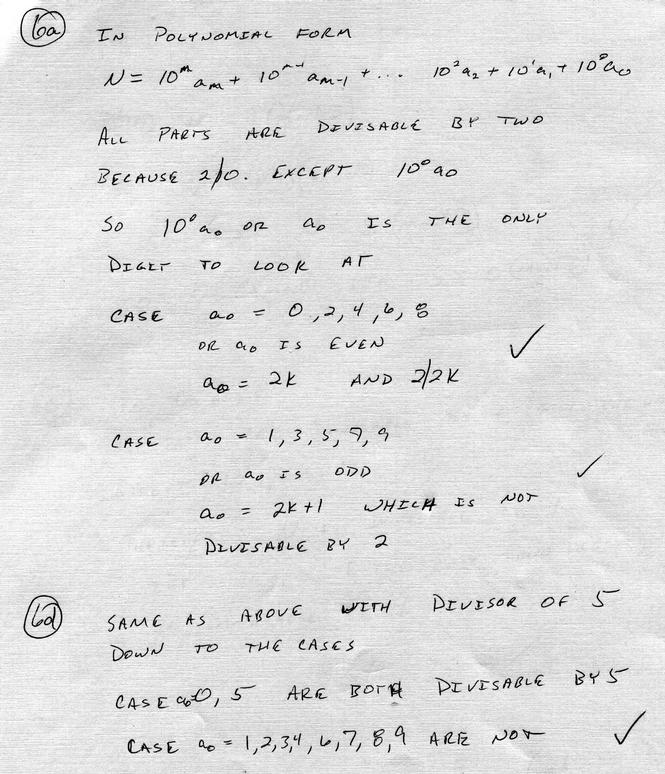 6a IN POLYNOMIAL FORM
N = 10^m a_m + 10^(m-1) a_(m-1) + ... 10^2 a_2 + 10^1 a_1 + 10^0 a_0
ALL PARTS ARE DIVISABLE BY TWO
BECAUSE 2|10. EXCEPT 10^0 a_0
SO 10^0 a_0 OR a_0 IS THE ONLY
DIGIT TO LOOK AT
CASE a_0 = 0, 2, 4, 6, 8
OR a_0 IS EVEN ✓
a_0 = 2K AND 2|2K
CASE a_0 = 1, 3, 5, 7, 9
OR a_0 IS ODD ✓
a_0 = 2K+1 WHICH IS NOT
DIVISABLE BY 2
6d SAME AS ABOVE WITH DIVISOR OF 5
DOWN TO THE CASES
CASE a_0 0, 5 ARE BOTH DIVISABLE BY 5
CASE a_0 = 1, 2, 3, 4, 6, 7, 8, 9 ARE NOT ✓